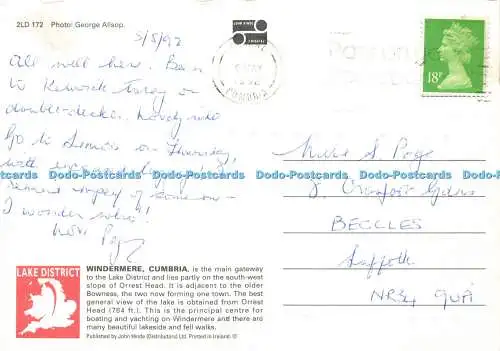 2LD 172 Photo: George Allsop.
5/5/92
All well here. Been
to Keswick today on
double-decker. Lovely ride
Go to on Thursday,
with
remind of someone –
I wonder who!
CUMBRIA
18P
8,
BECCLES
Suffolk
NR34 9UA
Dodo-Postcards Dodo-Postcards Dodo-Postcards Dodo-Postcards Dodo-Postcards
LAKE DISTRICT
WINDERMERE, CUMBRIA, is the main gateway
to the Lake District and lies partly on the south-west
slope of Orrest Head. It is adjacent to the older
Bowness, the two now forming one town. The best
general view of the lake is obtained from Orrest
Head (784 ft.). This is the principal centre for
boating and yachting on Windermere and there are
many beautiful lakeside and fell walks.
Published by John Hinde (Distributors) Ltd. Printed in Ireland. ©